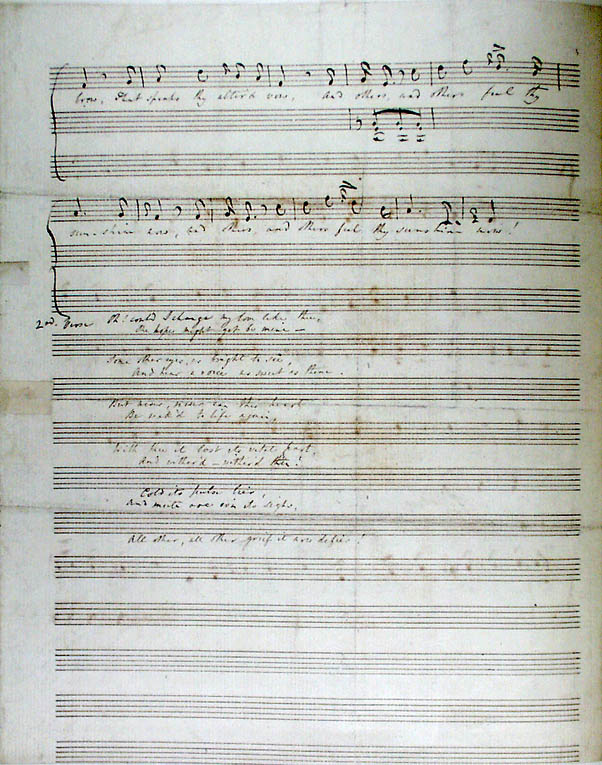 brow, That speaks thy alter'd vow, And others, and others feel thy
sun-shine now, and others, and others feel thy sunshine now!
2nd. Verse Oh! could I change my love like thee,
One hope might yet be mine —
Some other eyes, as bright to see,
And hear a voice as sweet as thine.
But never, never can this heart
Be wak'd to life again,
With thee it lost its vital part,
And wither'd — wither'd then!
Cold its pulse lies,
And mute are even its sighs,
All other, all other grief it now defies!